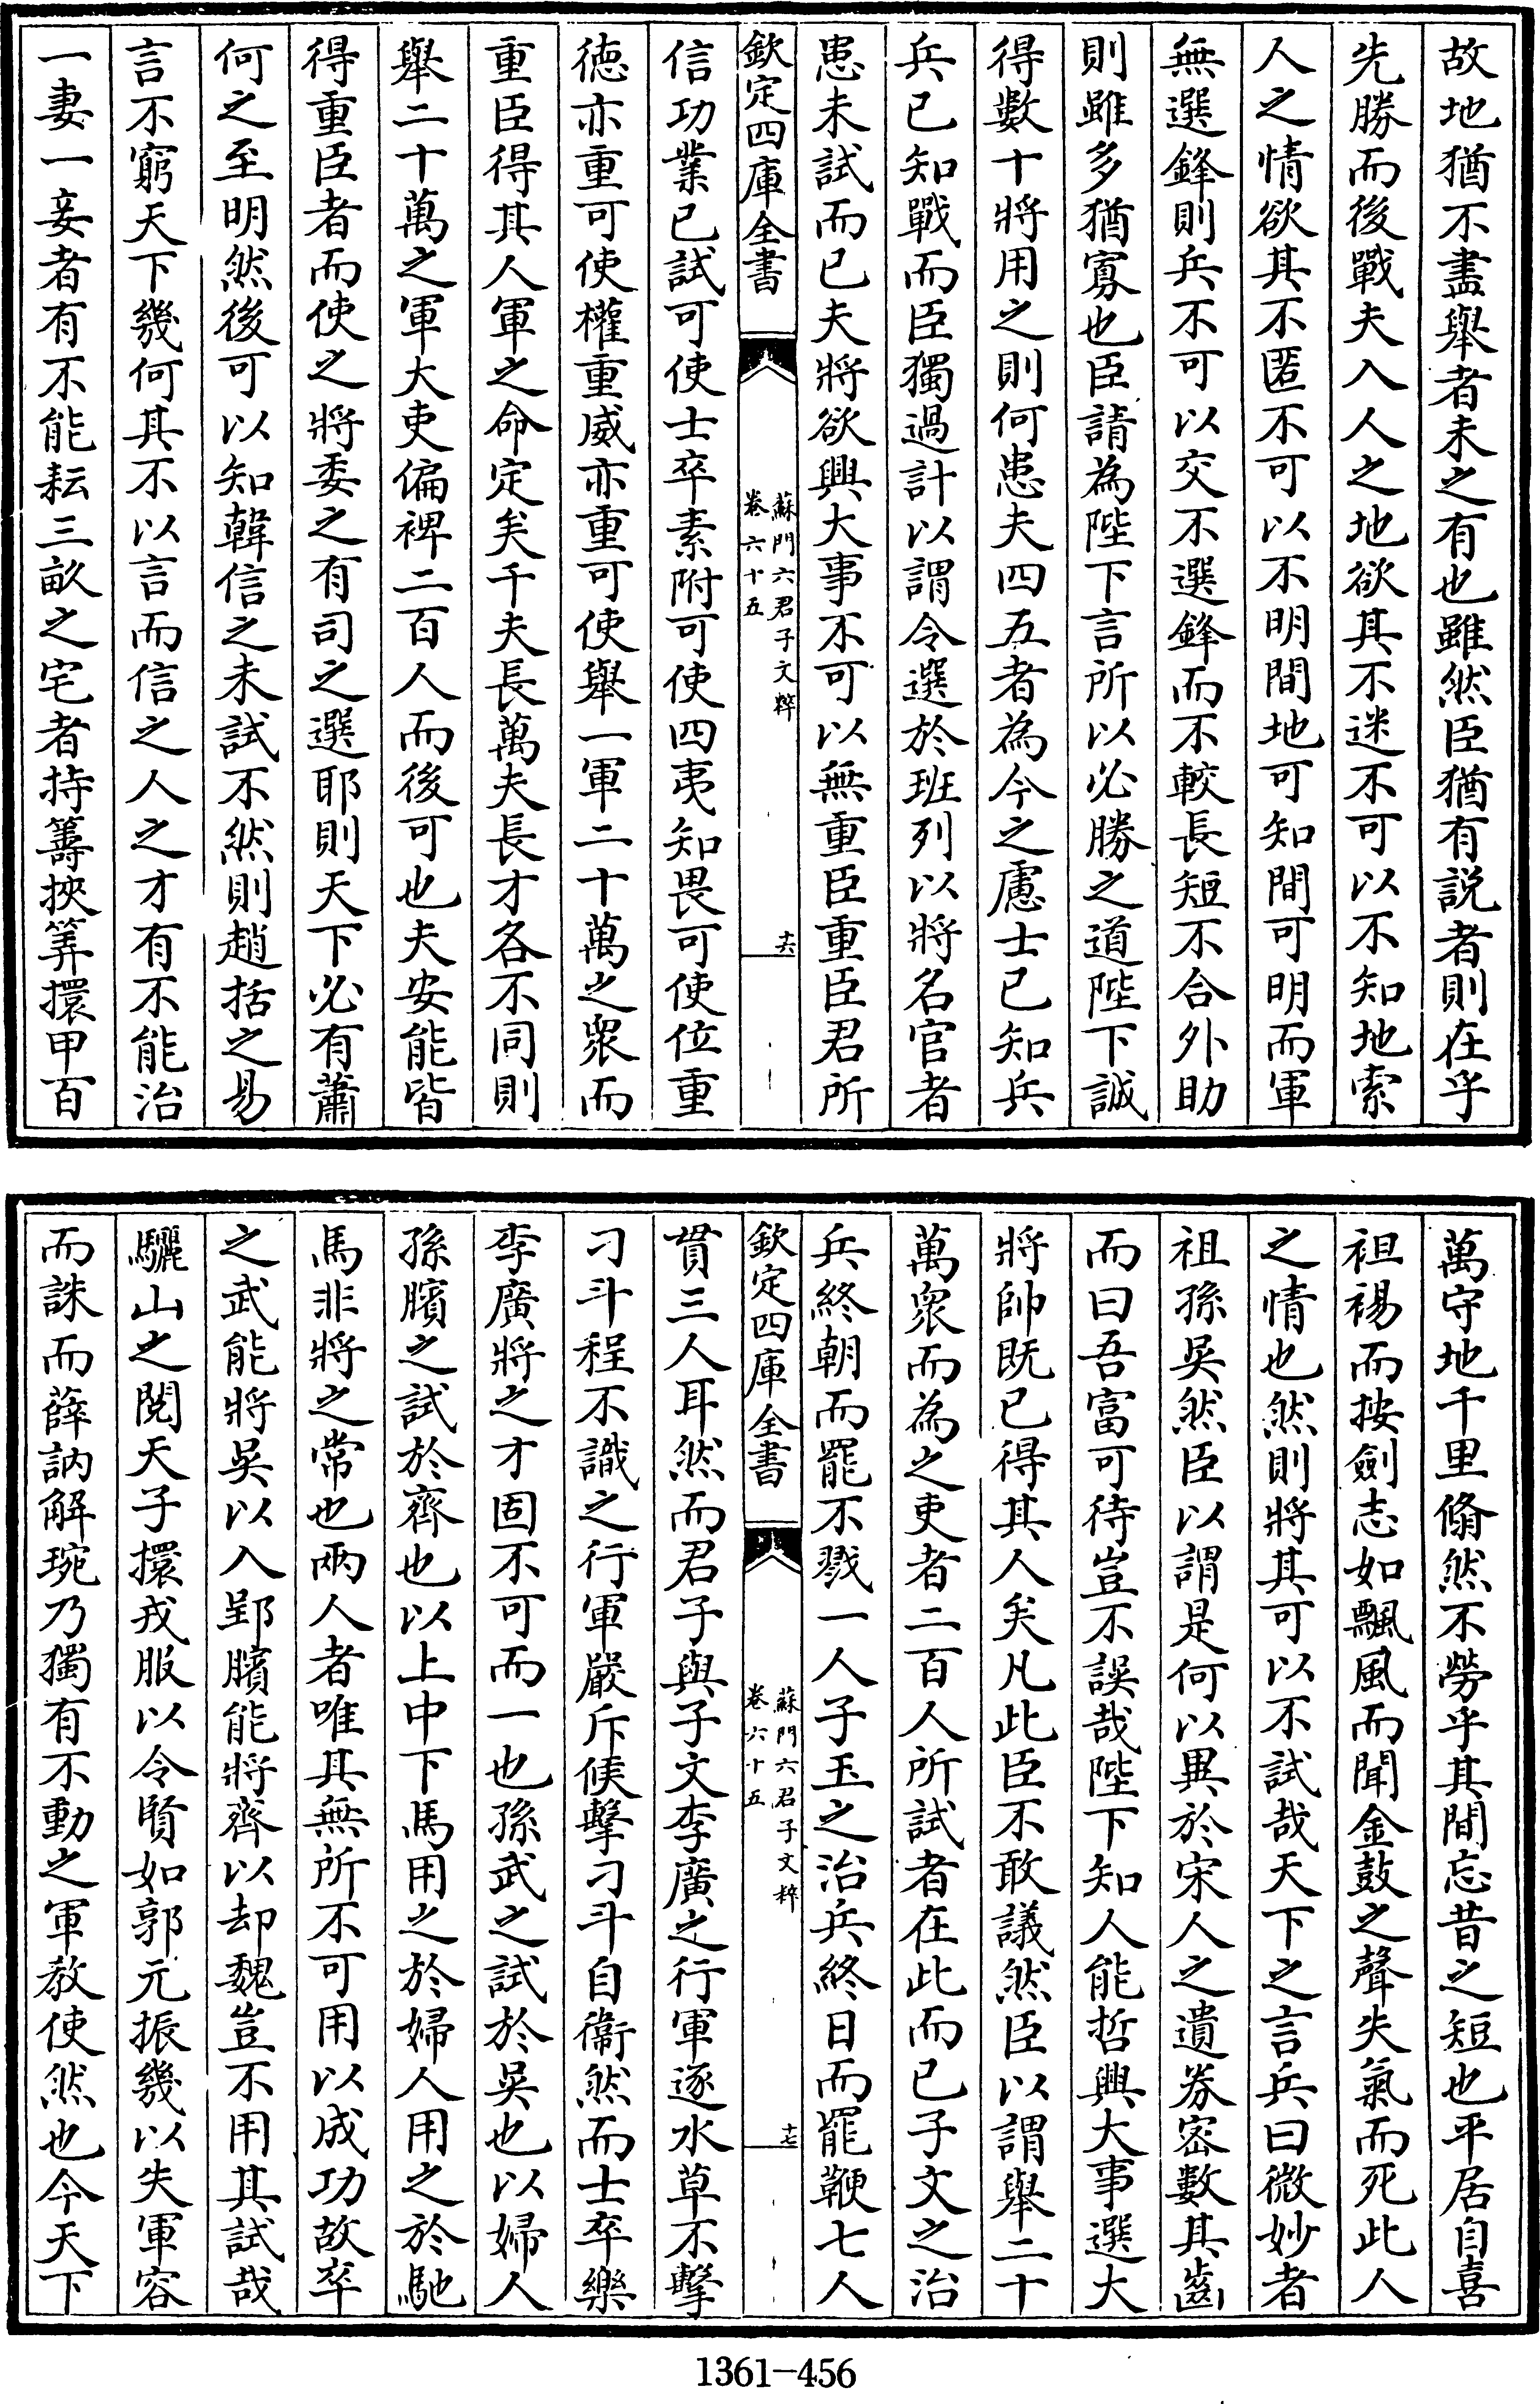 故地猶不盡舉者未之有也雖然臣猶有説者則在乎
先勝而後戰夫入人之地欲其不迷不可以不知地索
人之情欲其不匿不可以不明間地可知間可明而軍
無選鋒則兵不可以交不選鋒而不較長短不合外助
則雖多猶寡也臣請為陛下言所以必勝之道陛下誠
得數十將用之則何患夫四五者為今之慮士已知兵
兵已知戰而臣獨過計以謂令選於班列以將名官者
患未試而已夫將欲興大事不可以無重臣重臣君所
欽定四庫全書
蘇門六君子文粹
卷六十五
十六
信功業已試可使士卒素附可使四夷知畏可使位重
徳亦重可使權重威亦重可使舉一軍二十萬之衆而
重臣得其人軍之命定矣千夫長萬夫長才各不同則
舉二十萬之軍大吏偏裨二百人而後可也夫安能皆
得重臣者而使之將委之有司之選耶則天下必有蕭
何之至明然後可以知韓信之未試不然則趙括之易
言不窮天下幾何其不以言而信之人之才有不能治
一妻一妾者有不能耘三畝之宅者持籌挾筭擐甲百
萬守地千里翛然不勞乎其間忘昔之短也平居自喜
袒裼而按劍志如飄風而聞金鼓之聲失氣而死此人
之情也然則將其可以不試哉天下之言兵曰微妙者
祖孫吳然臣以謂是何以異於宋人之遺券密數其齒
而曰吾富可待豈不誤哉陛下知人能哲興大事選大
將帥既已得其人矣凡此臣不敢議然臣以謂舉二十
萬衆而為之吏者二百人所試者在此而已子文之治
兵終朝而罷不戮一人子玉之治兵終日而罷鞭七人
欽定四庫全書
蘇門六君子文粹
卷六十五
十七
貫三人耳然而君子與子文李廣之行軍逐水草不擊
刁斗程不識之行軍嚴斥候擊刁斗自衛然而士卒樂
李廣將之才固不可而一也孫武之試於吳也以婦人
孫臏之試於齊也以上中下馬用之於婦人用之於馳
馬非將之常也兩人者唯其無所不可用以成功故卒
之武能將吳以入郢臏能將齊以却魏豈不用其試哉
驪山之閲天子擐戎服以令賢如郭元振幾以失軍容
而誅而薛訥解琬乃獨有不動之軍教使然也今天下
1361-456